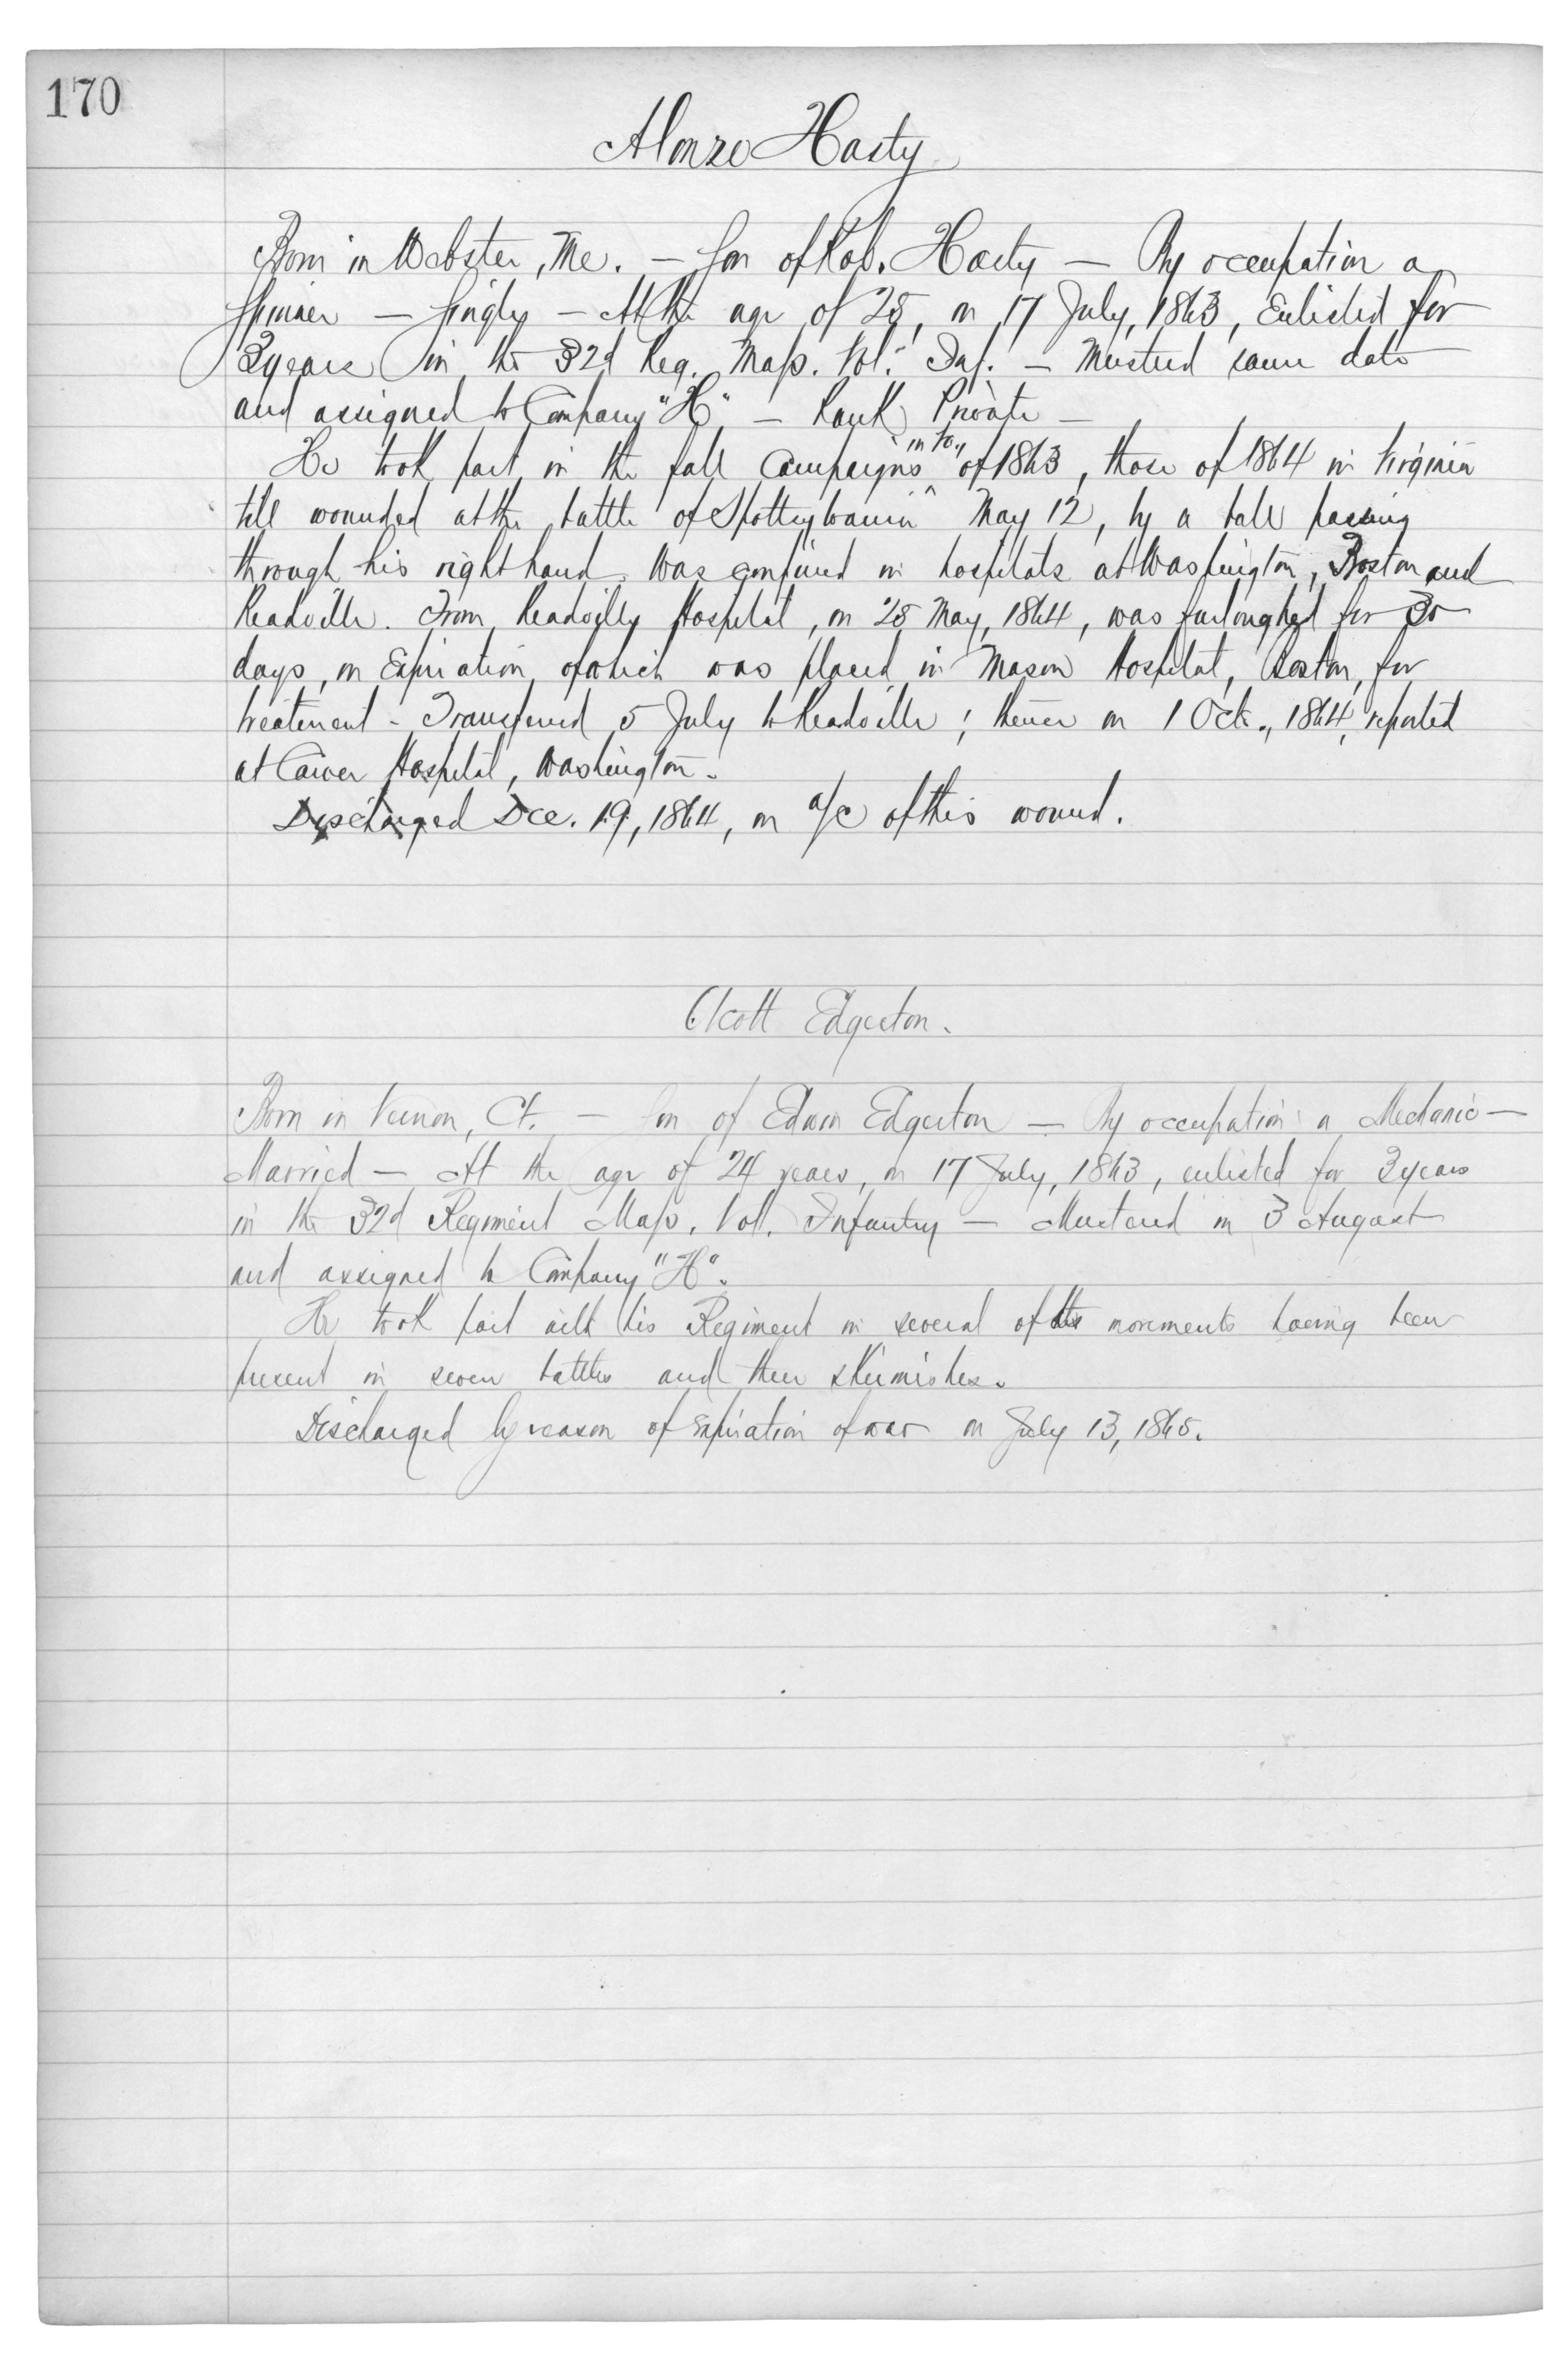 170
Alonzo Hasty
Born in Webster, Me. — Son of Rob. Hasty — By occupation a
Spinner — Single — At the age of 25, on 17 July, 1863, Enlisted for
3 years in the 32d Reg. Mass. Vol. Inf. — Mustered same date
and assigned to Company "H" — Rank Private —
He took part in the fall Campaigns "in Va." of 1863, those of 1864 in Virginia
till wounded at the battle of Spottsylvania May 12, by a ball passing
through his right hand. Was confined in hospitals at Washington, Boston and
Readville. From Readville Hospital, on 28 May, 1864, was furloughed for 30
days, on Expiration of which was placed in Mason Hospital, Boston, for
treatment - Transferred 5 July to Readville; thence on 1 Oct., 1864, reported
at Carver Hospital, Washington.
Discharged Dec. 19, 1864, on a/c of this wound.
Olcott Edgerton.
Born in Vernon, Ct. — Son of Edwin Edgerton — By occupation a Mechanic —
Married — At the age of 24 years, on 17 July, 1863, enlisted for 3 years
in the 32d Regiment Mass. Vol. Infantry — Mustered in 3 August
and assigned to Company "H".
He took part with his Regiment in several of its movements having been
present in seven battles and three skirmishes.
Discharged by reason of expiration of war on July 13, 1865.